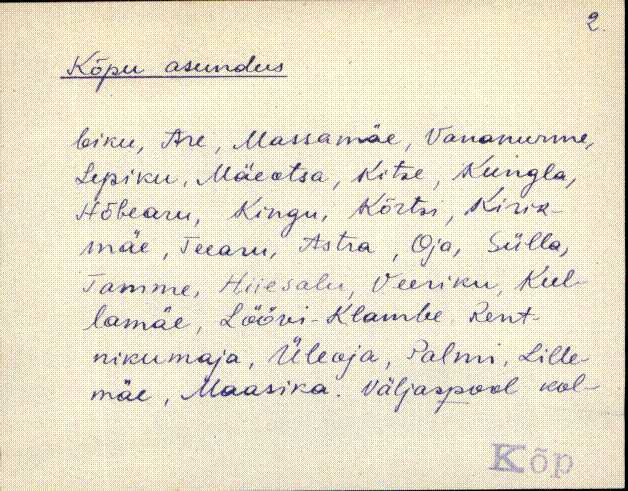 2.
Kõpu asundus
biku, Are, Massamäe, Vananurme,
Lepiku, Mäeotsa, Kitse, Kungla,
Hõbearu, Kingu, Kõrtsi, Kirik-
mäe, Teearu, Astra, Oja, Sülla,
Tamme, Hiiesalu, Veeriku, Kul-
lamäe, Löövi-Klambe Rent-
nikumaja, Üleoja, Palmi, Lille-
mäe, Maasika. Väljaspool kol-
Kõp